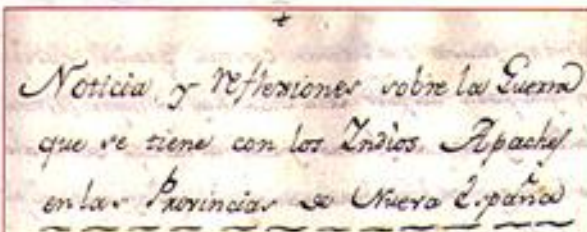 Noticia, y reflexiones sobre la Guerra
que se tiene con los Indios Apaches
en las Provincias de Nueva España